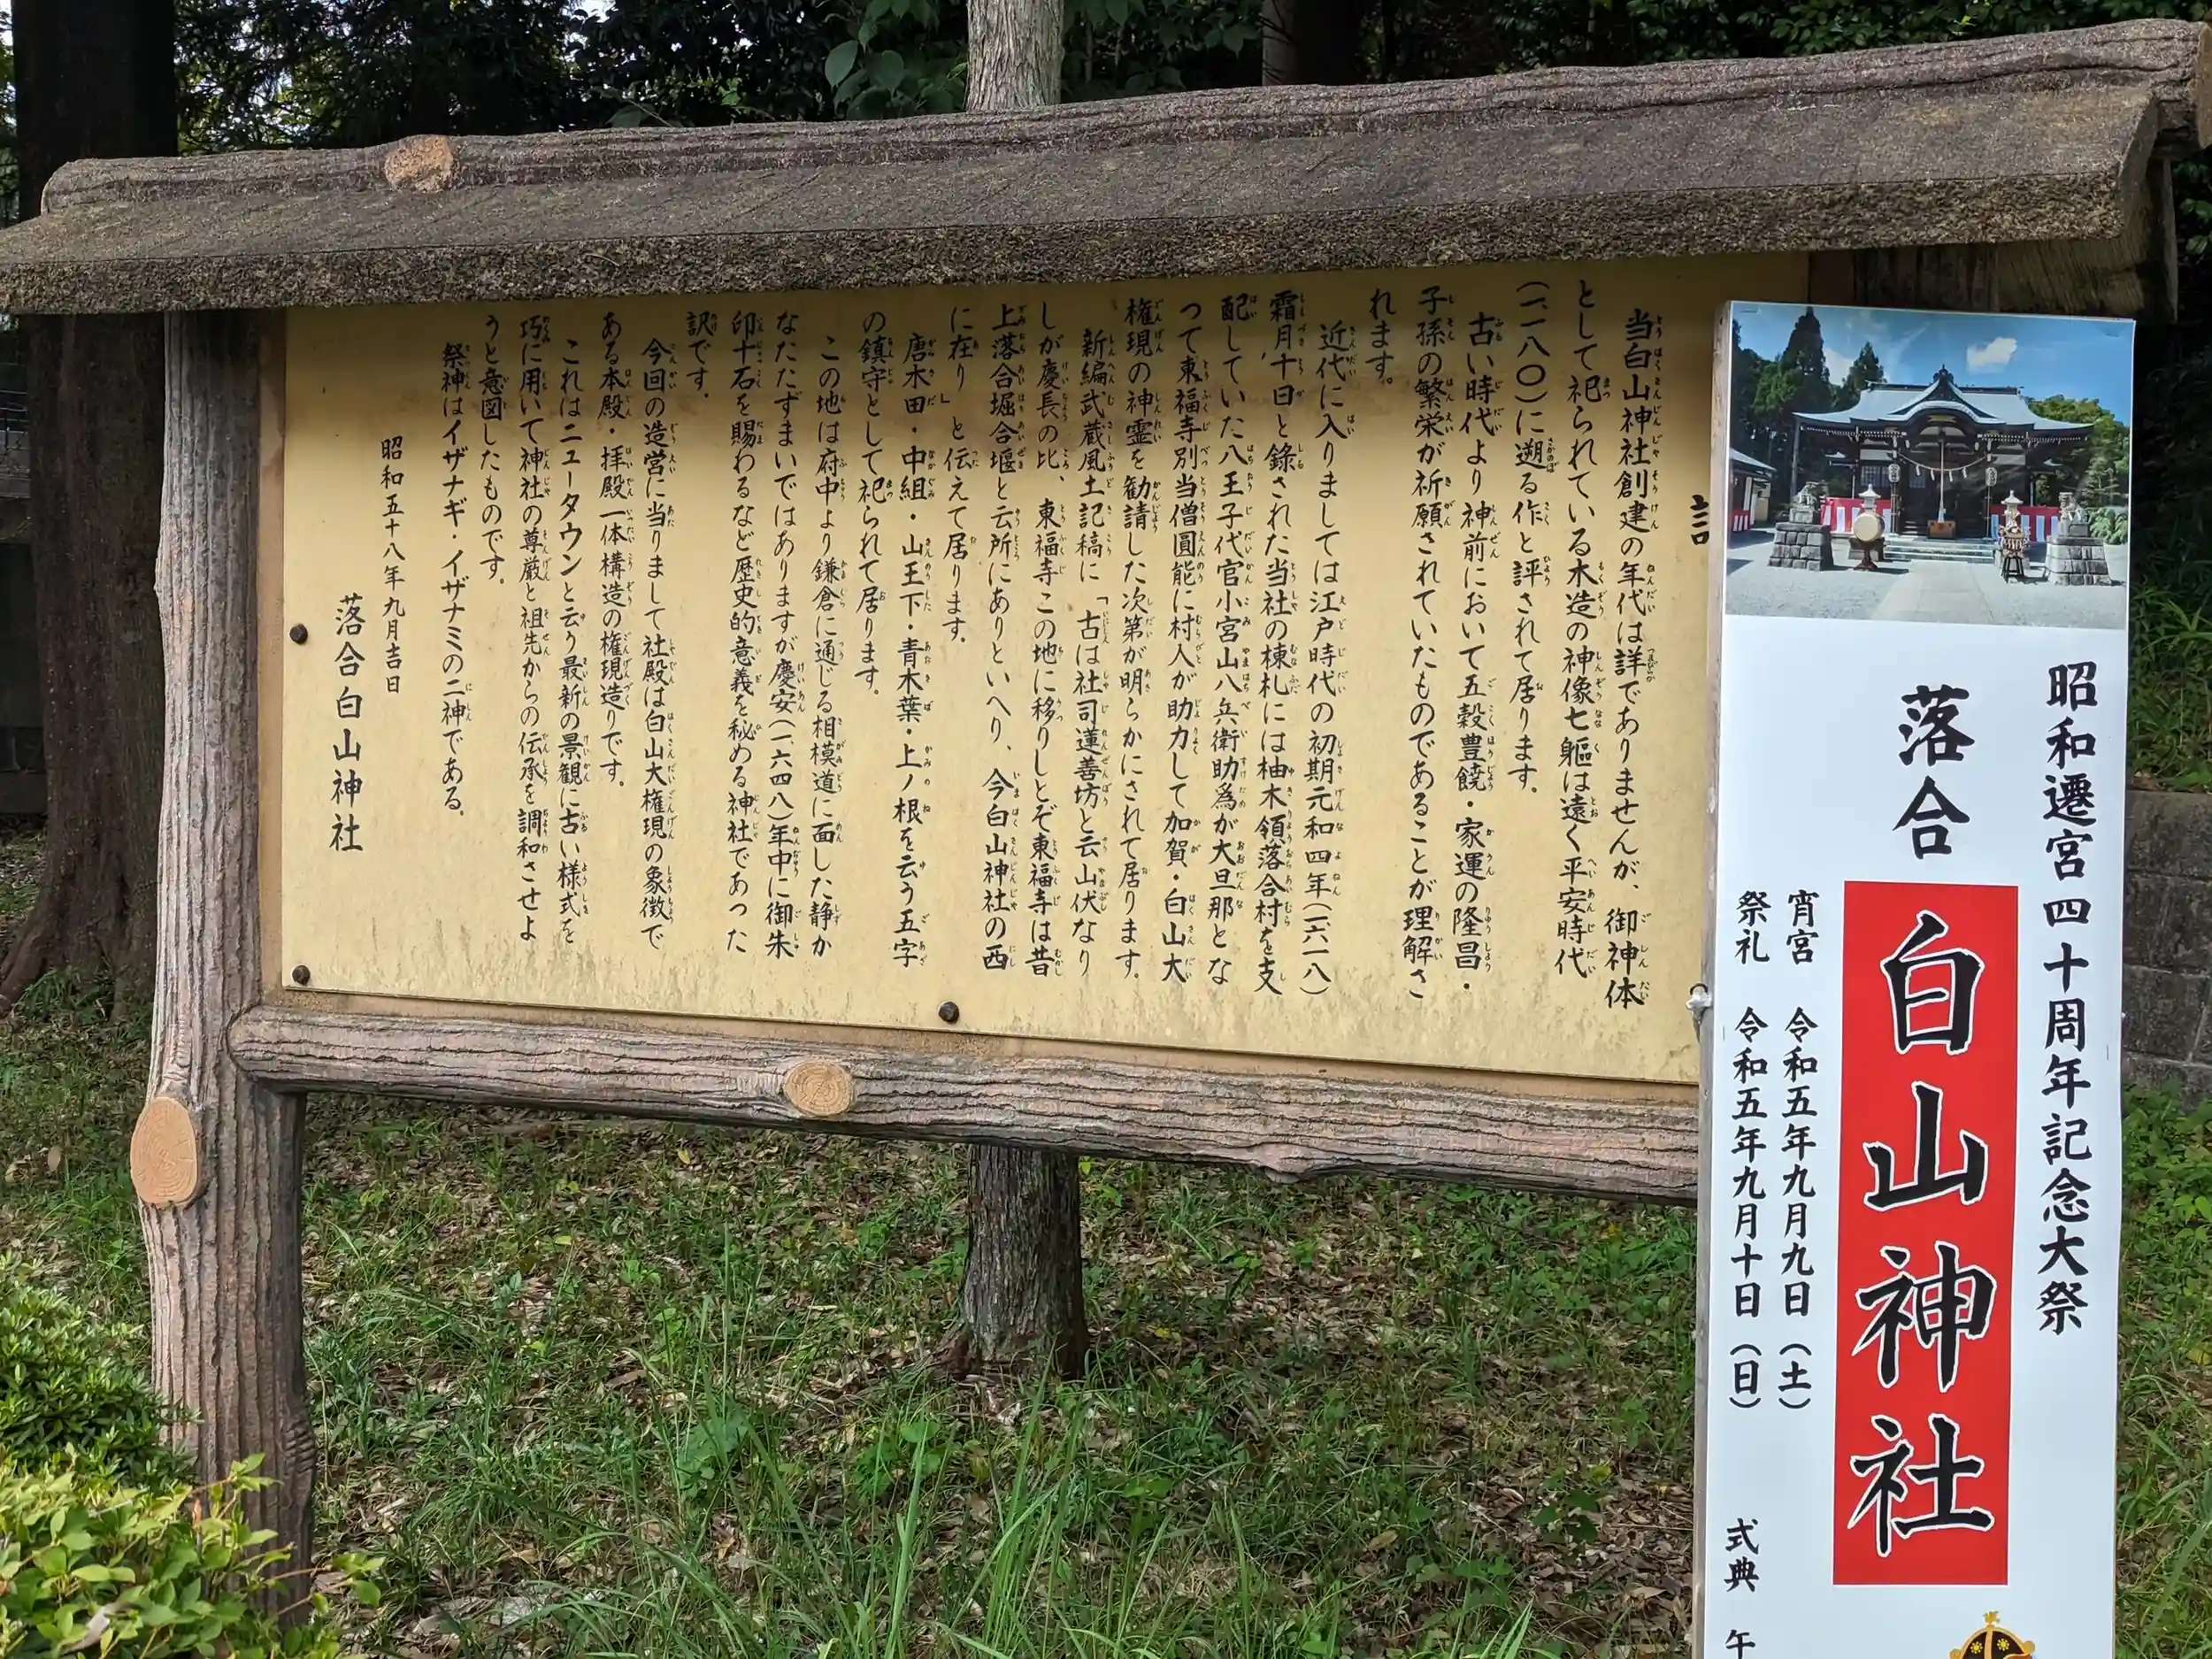 昭和遷宮四十周年記念大祭
落合
白山神社
宵宮 令和五年九月九日(土)
祭礼 令和五年九月十日(日) 式典 午
当白山神社創建の年代は詳でありませんが、御神体
として祀られている木造の神像七躯は遠く平安時代
(一一八〇)に遡る作と評されて居ります。
古い時代より神前において五穀豊饒・家運の隆昌・
子孫の繁栄が祈願されていたものであることが理解さ
れます。
近代に入りましては江戸時代の初期元和四年(一六一八)
霜月十日と錄された当社の棟札には柚木領落合村を支
配していた八王子代官小宮山八兵衛助爲が大旦那とな
って東福寺別当僧圓能に村人が助力して加賀・白山大
権現の神霊を勧請した次第が明らかにされて居ります。
新編武蔵風土記稿に「古は社司蓮善坊と云山伏なり
しが慶長の比、東福寺この地に移りしとぞ東福寺は昔
上落合堀合堰と云所にありといへり、今白山神社の西
に在り」と伝えて居ります。
唐木田・中組・山王下・青木葉・上ノ根を云う五字
の鎮守として祀られて居ります。
この地は府中より鎌倉に通じる相模道に面した静か
なたたずまいではありますが慶安(一六四八)年中に御朱
印十石を賜わるなど歴史的意義を秘める神社であった
訳です。
今回の造営に当りまして社殿は白山大権現の象徴で
ある本殿・拝殿一体構造の権現造りです。
これはニュータウンと云う最新の景観に古い様式を
巧に用いて神社の尊厳と祖先からの伝承を調和させよ
うと意図したものです。
祭神はイザナギ・イザナミの二神である。
昭和五十八年九月吉日
落合白山神社